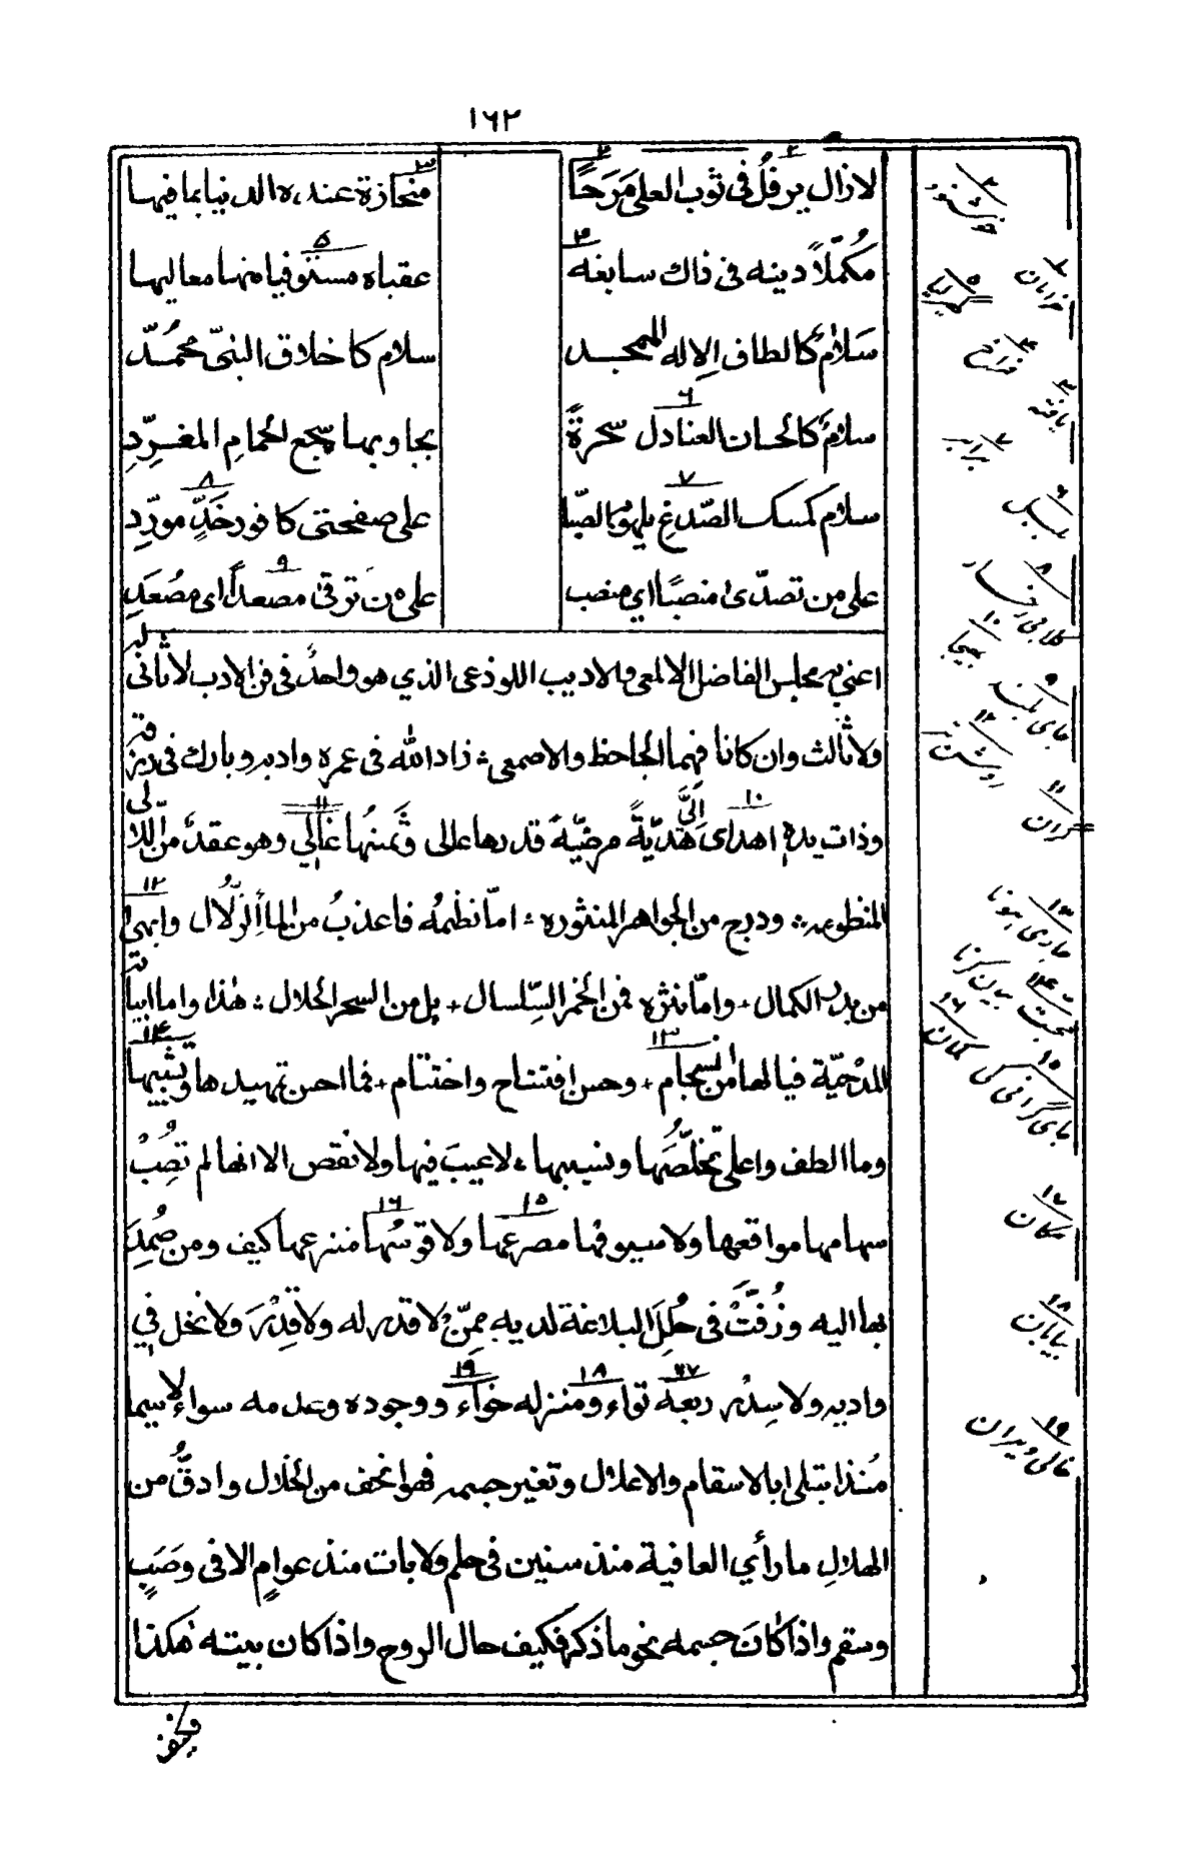 ١٦٢
لازال يرفلُ في ثوب العلى مَرَحًا
منحازة عنده الدنيا بما فيها
مُكمّلاً دينه في ذاك سابغه
عقباه مستوفيا منها معاليها
سَلامٌ كالطاف الاِله الممجد
سلام كاخلاق النبيّ محمُدّ
سلامٌ كالحان العنادل سحرةً
يجاوبها سجع الحمامِ المغرِّدِ
سلام كمسك الصّدغِ يلهو بها الصّبا
على صفحتي كافور خَدٍّ مورِّد
على من تصدّى منصبًا اي منصب
على من ترقى مصعداً اى مصُعَدِ
اعني به مجلس الفاضل الالمعي والاديب اللوذعى الذي هو واحدٌ في فن الادب لا ثانى له
ولا ثالث وان كانا فيهما الجاحظ والاصمعي ؞ زاد الله فى عمره وادبه وبارك فى رزقه
وذات يده اهداى اِلَىَّ هَديّةً مرضيّة قدرها عالى وثمنهُا غالي وهو عقدٌ من اللالى
المنظومه ؞ ودرج من الجواهر المنثوره ؞ امّا نظمهُ فاعذبُ من الماءِ الزّلال وابهىٰ
من بدر الكمال ٭ وامّا نثره فمن الخمر السِّلسال ٭ بل من السحر الحلال ؞ هٰذا واما ابياته
المدْحيّة فيا لها من انسجام ٭ وحسن افتتاح واختتام ٭ فما احسن تمهيدها وتشبيبها
وما الطف واعلى تخلّصَُها ونسيبها ؞ لاعيبَ فيها ولا نقص الا انها لم تصُِبْ
سهامها مواقعها ولا سيوفها مصرعها ولا قوسُها منزعها كيف ومن صُمِدَ
بها اليه وزُفَّتْ فى حُلَلِ البلاغة لديه مِمّنْ لا قدر له ولا قِدْرَ ولا نخل في
واديه ولا سِدْر ربعه تواء ومنزله خواء ووجوده وعدمه سواء لا سيما
مُنذ ابتلى بالاسقام والاعلال وتغير جسمه فهو انحف من الخلال وادقُّ من
الهلالِ ما رأي العافية منذ سنين في حلم ولا بات منذ عوامٍ الا فى وصَبٍ
وسقم واذا كانَ جسمه نحو ما ذكر فكيف حال الروح واذا كان بيته هٰكذا
فكيف
خرامان
یافته
فراخ
بلبل
گران
جاری ہونا
مکان
بیابان
خالی ویران